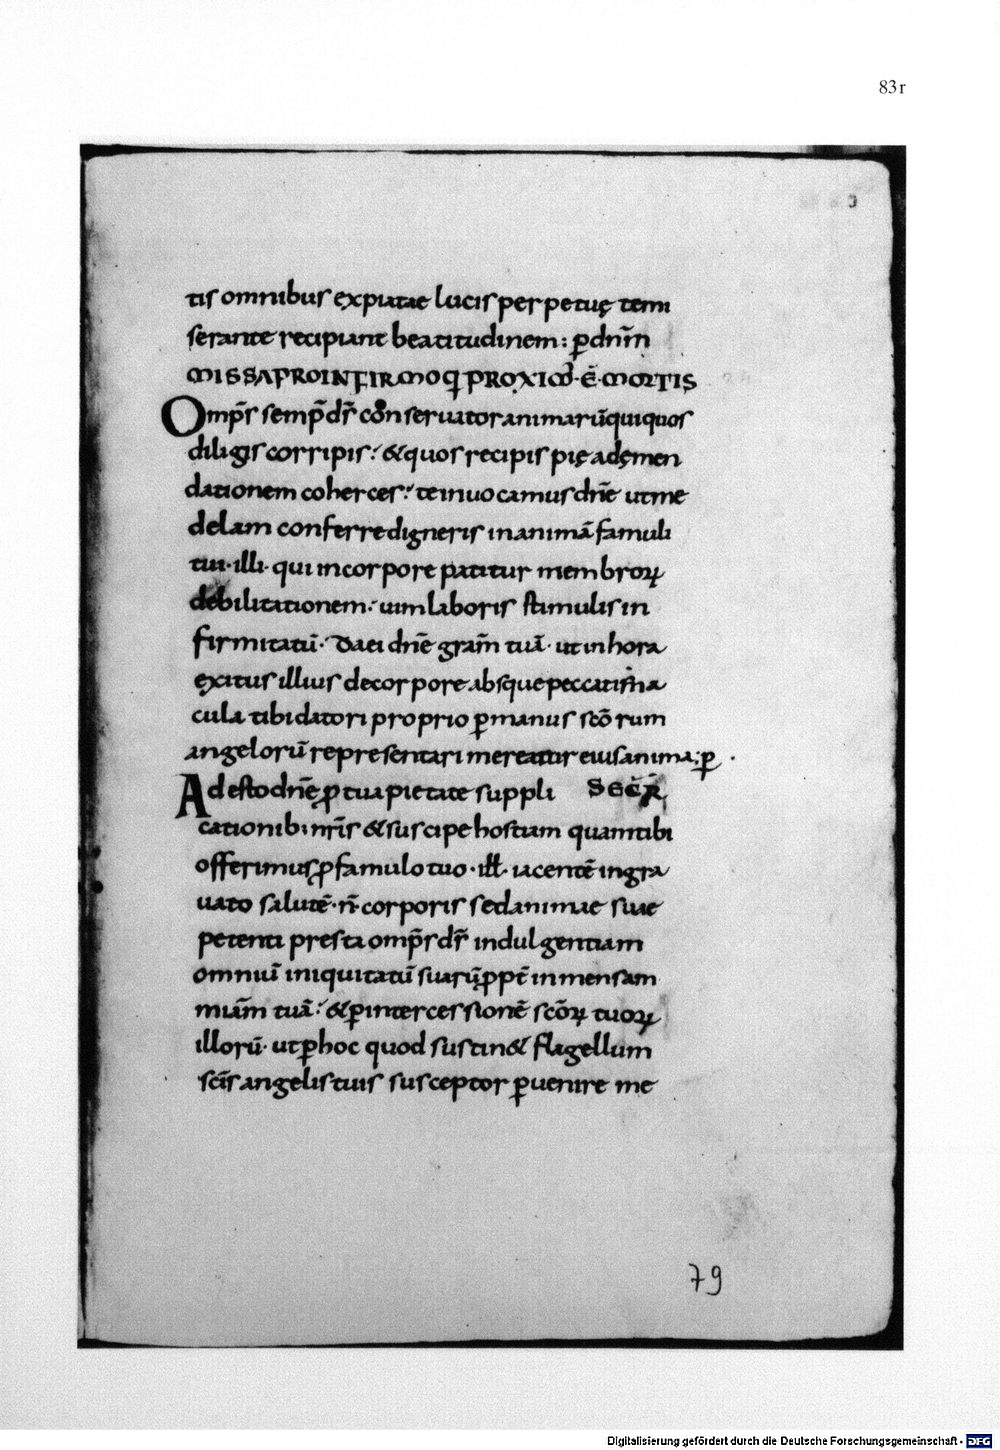 83r
tis omnibus expiatae lucis perpetuę te mi
serante recipiant beatitudinem: p̄ dnm̄
MISSA PRO INFIRMO Q PROXIM' · Ē · MORTIS
Omp̄s semp̄ d̄s conservator animarū qui quos
diligis corripis: & quos recipis pię ad ęmen
dationem coherces: te invocamus dnē ut me
delam conferre digneris in animā famuli
tui · illi · qui in corpore patitur membroꝝ
debilitationem: vim laboris stimulis in
firmitatū · Da ei dnē gram̄ tuā · ut in hora
exitus illius de corpore absque peccati ma
cula tibi datori proprio p̄ manus scō rum
angelorū representari mereatur eius anima; p̄
Adesto dnē ꝓ tua pietate suppli SECR̄
cationib; nr̄is & suscipe hostiam quam tibi
offerimus ꝓ famulo tuo · ill · iacentē in gra
vato salutē · n̄ corporis sed animae suae
petenti presta omp̄s d̄s indulgentiam
omniū iniquitatū suarū ꝓpt̄ inmensam
miam̄ tuā: & p̄ intercessionē scōꝝ tuoꝝ
illorū · ut p̄ hoc quod sustin& flagellum
scīs angelis tuis susceptor p̄venire me
79
Digitalisierung gefördert durch die Deutsche Forschungsgemeinschaft - DFG